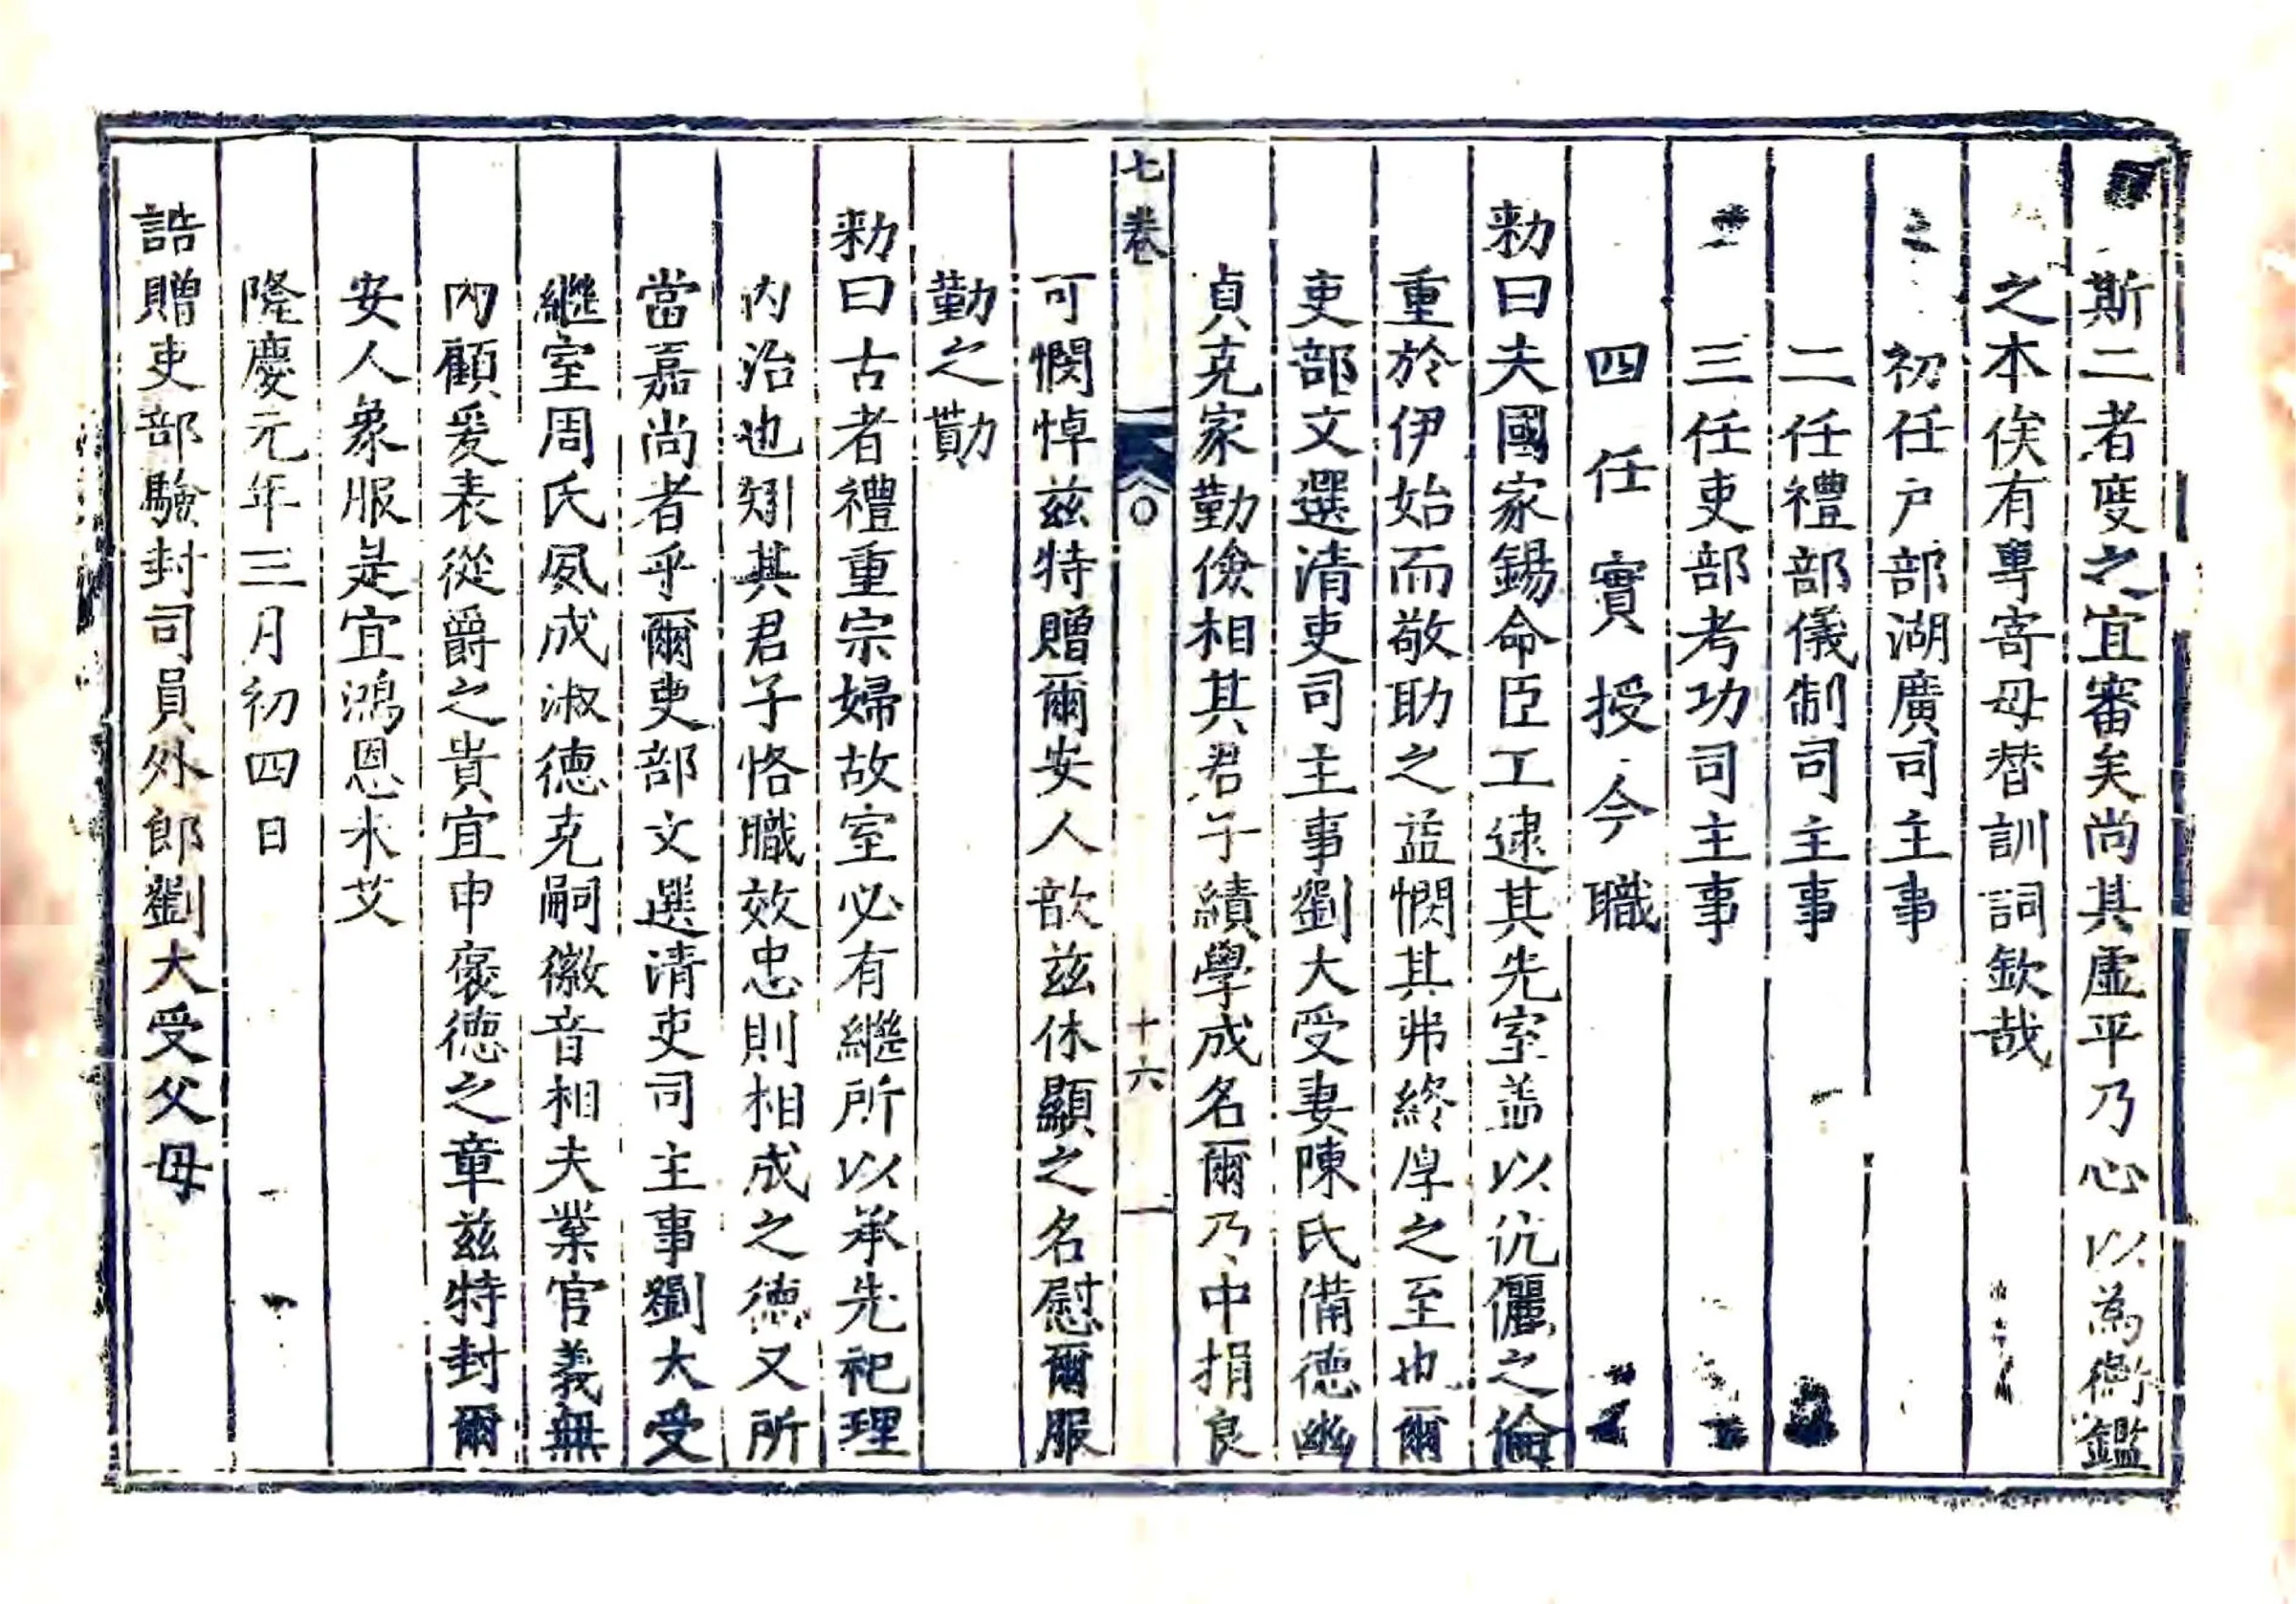 斯二者度之宜審矣尚其虛平乃心以為衡鑑
之本俟有專寄母替訓詞欽哉
初任户部湖廣司主事
二任禮部儀制司主事
三任吏部考功司主事
四任實授今職
勑曰夫國家錫命臣工逮其先室盖以伉儷之倫
重於伊始而敬助之益憫其弗終厚之至也爾
吏部文選清吏司主事劉大受妻陳氏備德幽
貞克家勤儉相其君子績學成名爾乃中捐良
七卷
十六
可憫悼兹特贈爾安人歆兹休顯之名慰爾服
勤之勩
勑曰古者禮重宗婦故室必有繼所以承先祀理
内治也矧其君子恪職效忠則相成之德又所
當嘉尚者乎爾吏部文選清吏司主事劉大受
繼室周氏夙成淑德克嗣徽音相夫業官義無
內顧爰表從爵之貴宜申褒德之章兹特封爾
安人象服是宜鴻恩未艾
隆慶元年三月初四日
誥贈吏部驗封司員外郎劉大受父母